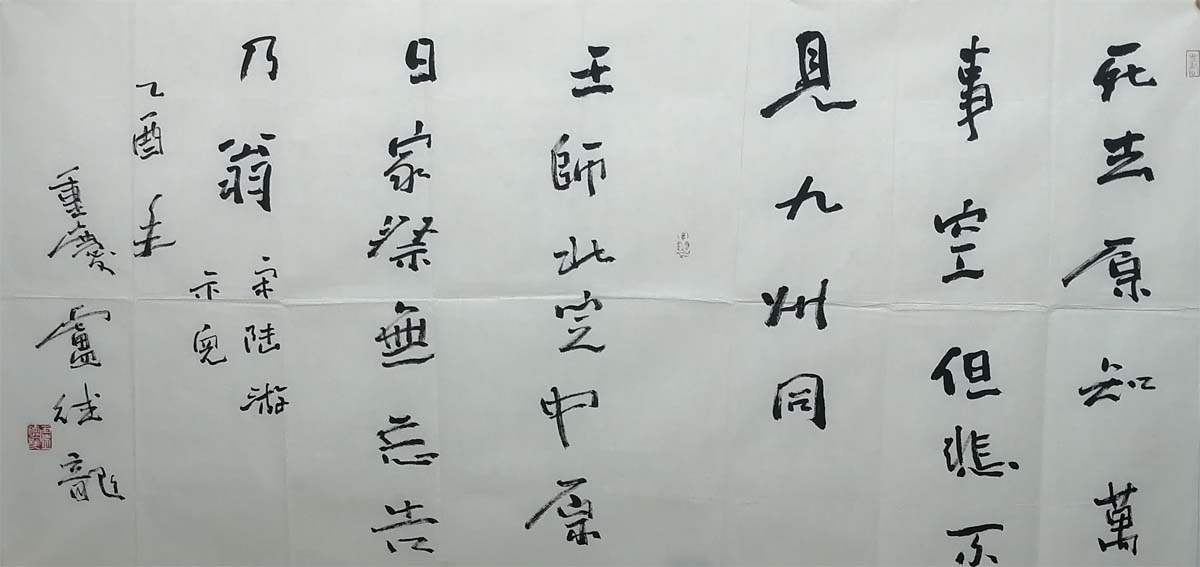 死去原知萬
事空但悲不
見九州同
王師北定中原
日家祭無忘告
乃翁
宋陸游
示兒
乙酉年
重慶盧龍